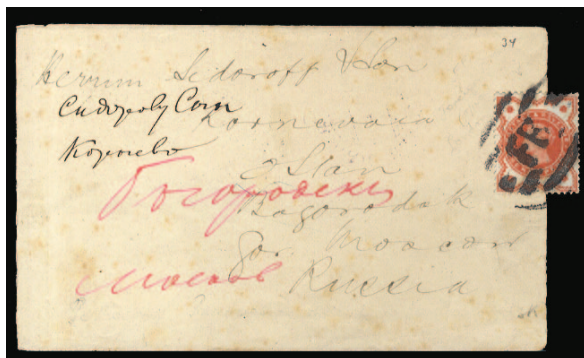 34
Herrn Sidoroff & Son
Сидорову Сын
Корнево
Stan
Богородск
Bogorodsk
gov. Moscow
Москов
Russia
FB